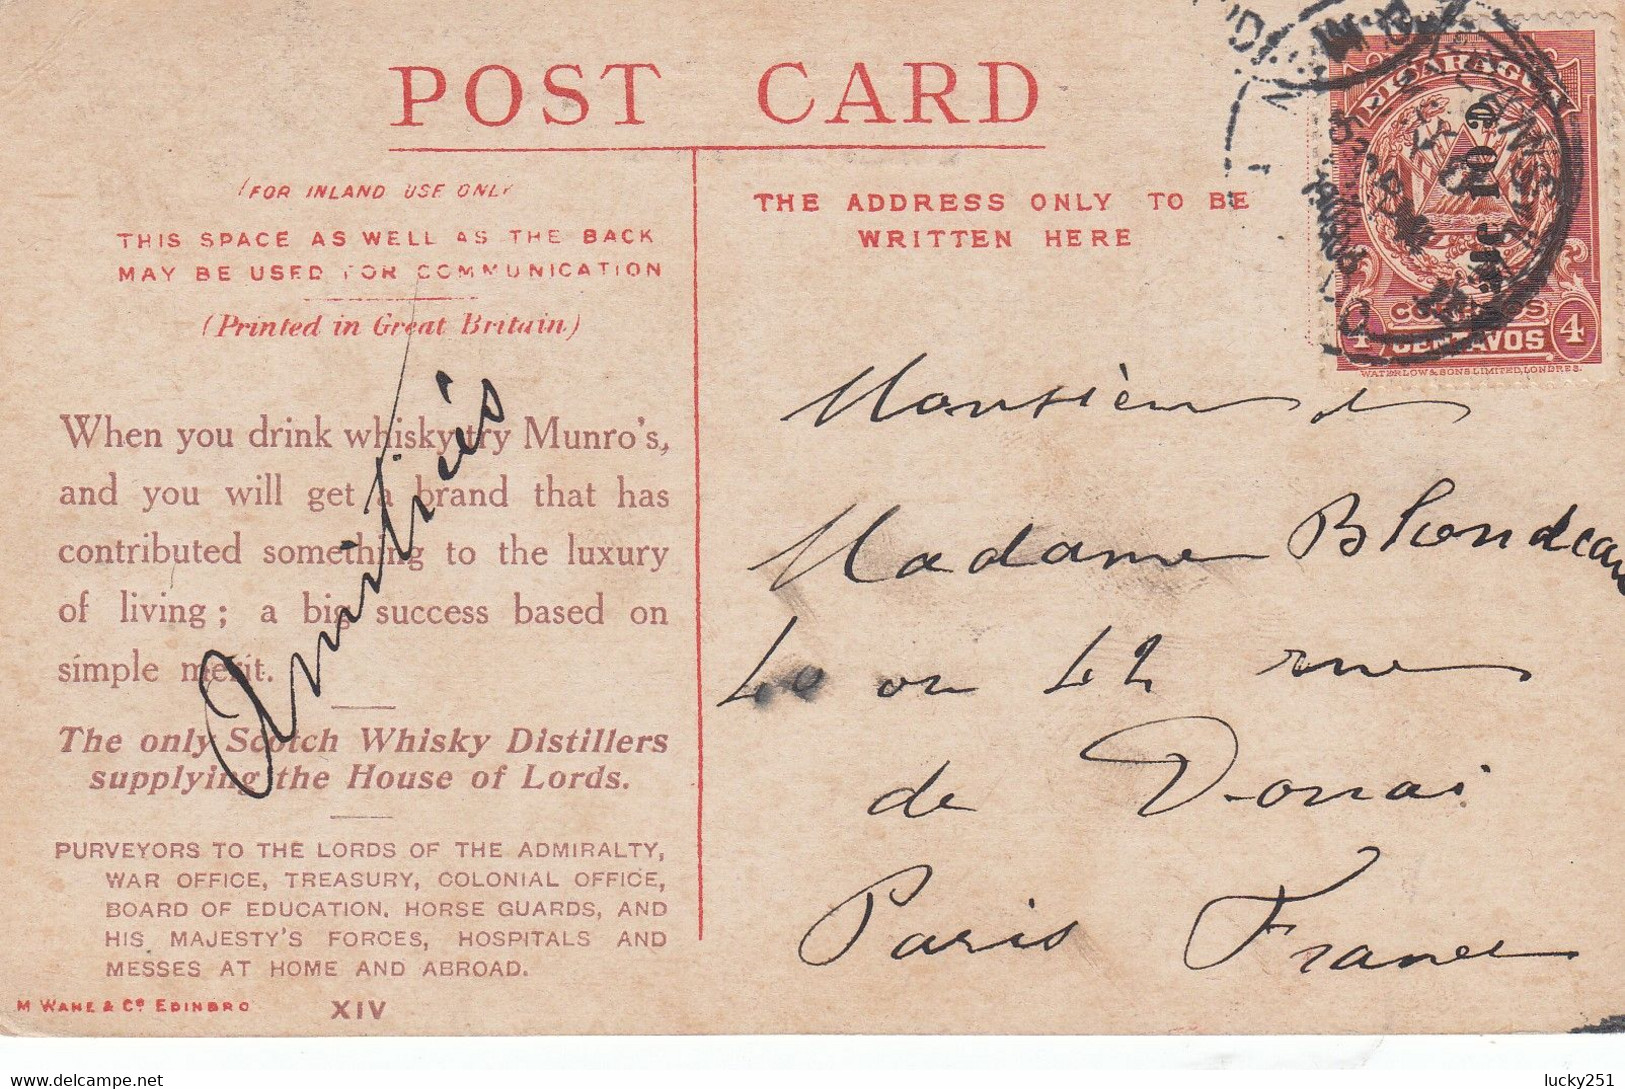 POST CARD
(FOR INLAND USE ONLY
THIS SPACE AS WELL AS THE BACK
MAY BE USED FOR COMMUNICATION
(Printed in Great Britain)
When you drink whisky try Munro's,
and you will get a brand that has
contributed something to the luxury
of living; a big success based on
simple merit.
The only Scotch Whisky Distillers
supplying the House of Lords.
PURVEYORS TO THE LORDS OF THE ADMIRALTY,
WAR OFFICE, TREASURY, COLONIAL OFFICE,
BOARD OF EDUCATION, HORSE GUARDS, AND
HIS MAJESTY'S FORCES, HOSPITALS AND
MESSES AT HOME AND ABROAD.
M WANE & Co EDINBRO
XIV
Amitiés
THE ADDRESS ONLY TO BE
WRITTEN HERE
NICARAGUA
CORREOS
4 CENTAVOS 4
WATERLOW & SONS LIMITED, LONDRES.
Monsieur et
Madame Blondeau
40 ou 42 rue
de Douai
Paris France
lucky251.delcampe.net
lucky251